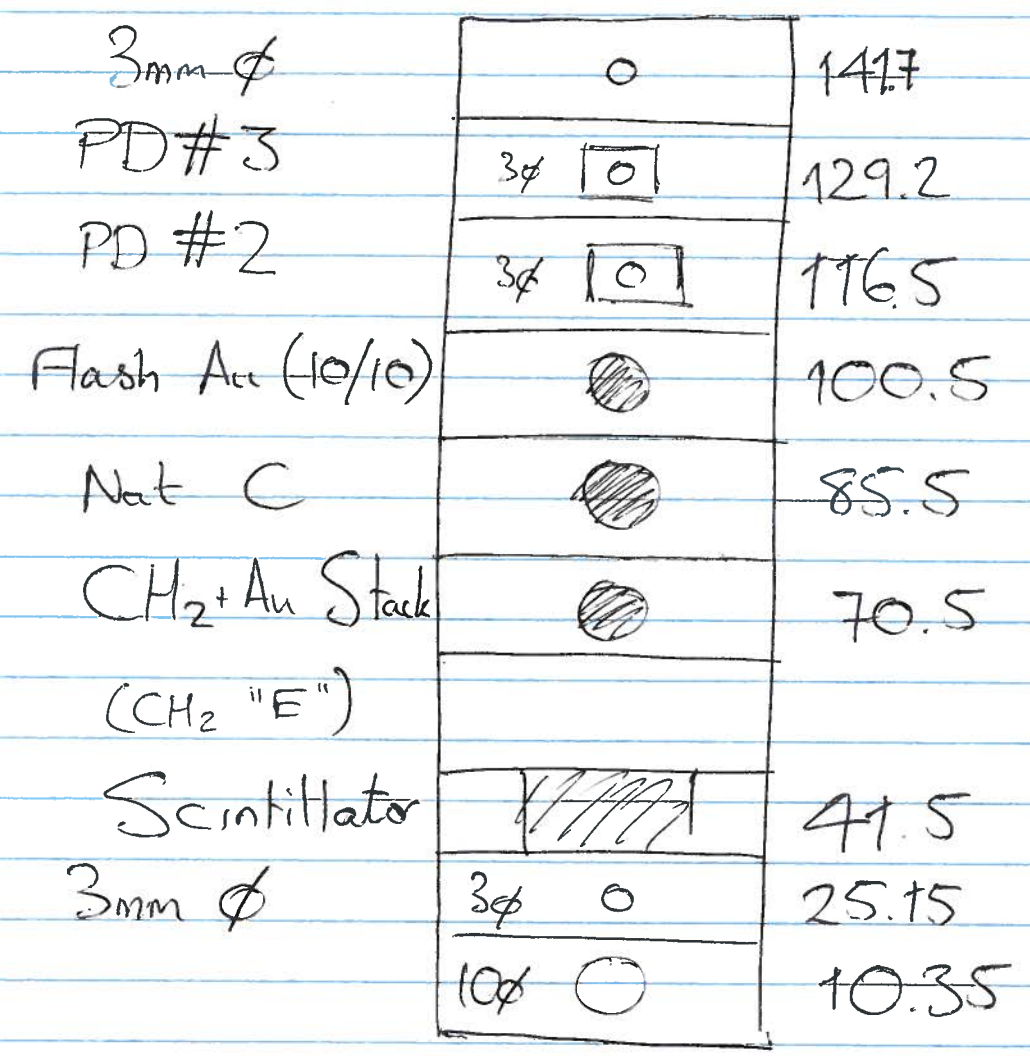 3mm ∅ 141.7
PD #3 3∅ 129.2
PD #2 3∅ 116.5
Flash Au (10/10) 100.5
Nat C 85.5
CH₂+Au Stack 70.5
(CH₂ "E")
Scintillator 41.5
3mm ∅ 3∅ 25.15
10∅ 10.35